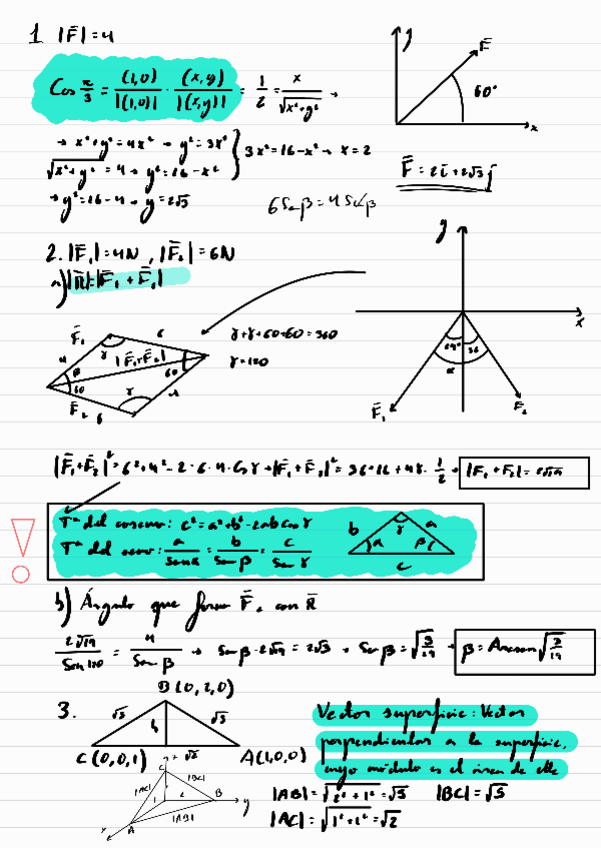 1 |F̄|=4
Cos π/3 = (1,0)/|(1,0)| · (x,y)/|(x,y)| = 1/2 = x/√(x²+y²) →
→ x²+y² = 4x² → y² = 3x²
√(x²+y²) = 4 → y² = 16-x²
} 3x² = 16-x² → x = 2
→ y² = 16-4 → y = 2√3
y
F̄
60°
x
F̄ = 2ī+2√3 j̄
6 Sen β = 4 Sen β
2. |F̄₁|=4N, |F̄₂|=6N
a) |R̄|=|F̄₁+F̄₂|
F̄₁
6
4
γ
|F̄₁+F̄₂|
α
60
60
F̄₂
6
γ
4
γ+γ+60+60=360
γ=120
y
x
α
F̄₁
F̄₂
|F̄₁+F̄₂|²= 6²+4²-2·6·4·Cos γ → |F̄₁+F̄₂|²= 36+16+48·1/2 → |F₁+F₂|= 2√19
Tª del coseno: c²=a²+b²-2ab Cos γ
Tª del seno: a/Sen α = b/Sen β = c/Sen γ
b
γ
a
α
β
c
b) Ángulo que forma F̄₂ con R̄
2√19/Sen 120 = 4/Sen β → Sen β·2√19 = 2√3 → Sen β = √(3/19) → β = Arcsen √(3/19)
3.
B(0,2,0)
√5
h
√5
C(0,0,1)
√2
A(1,0,0)
Vector superficie: Vector
perpendicular a la superficie,
cuyo módulo es el área de ella
z
C
|AC|
|BC|
1
2
B
y
|AB|
A
x
|AB|=√(2²+1²)=√5 |BC|=√5
|AC|=√(1²+1²)=√2